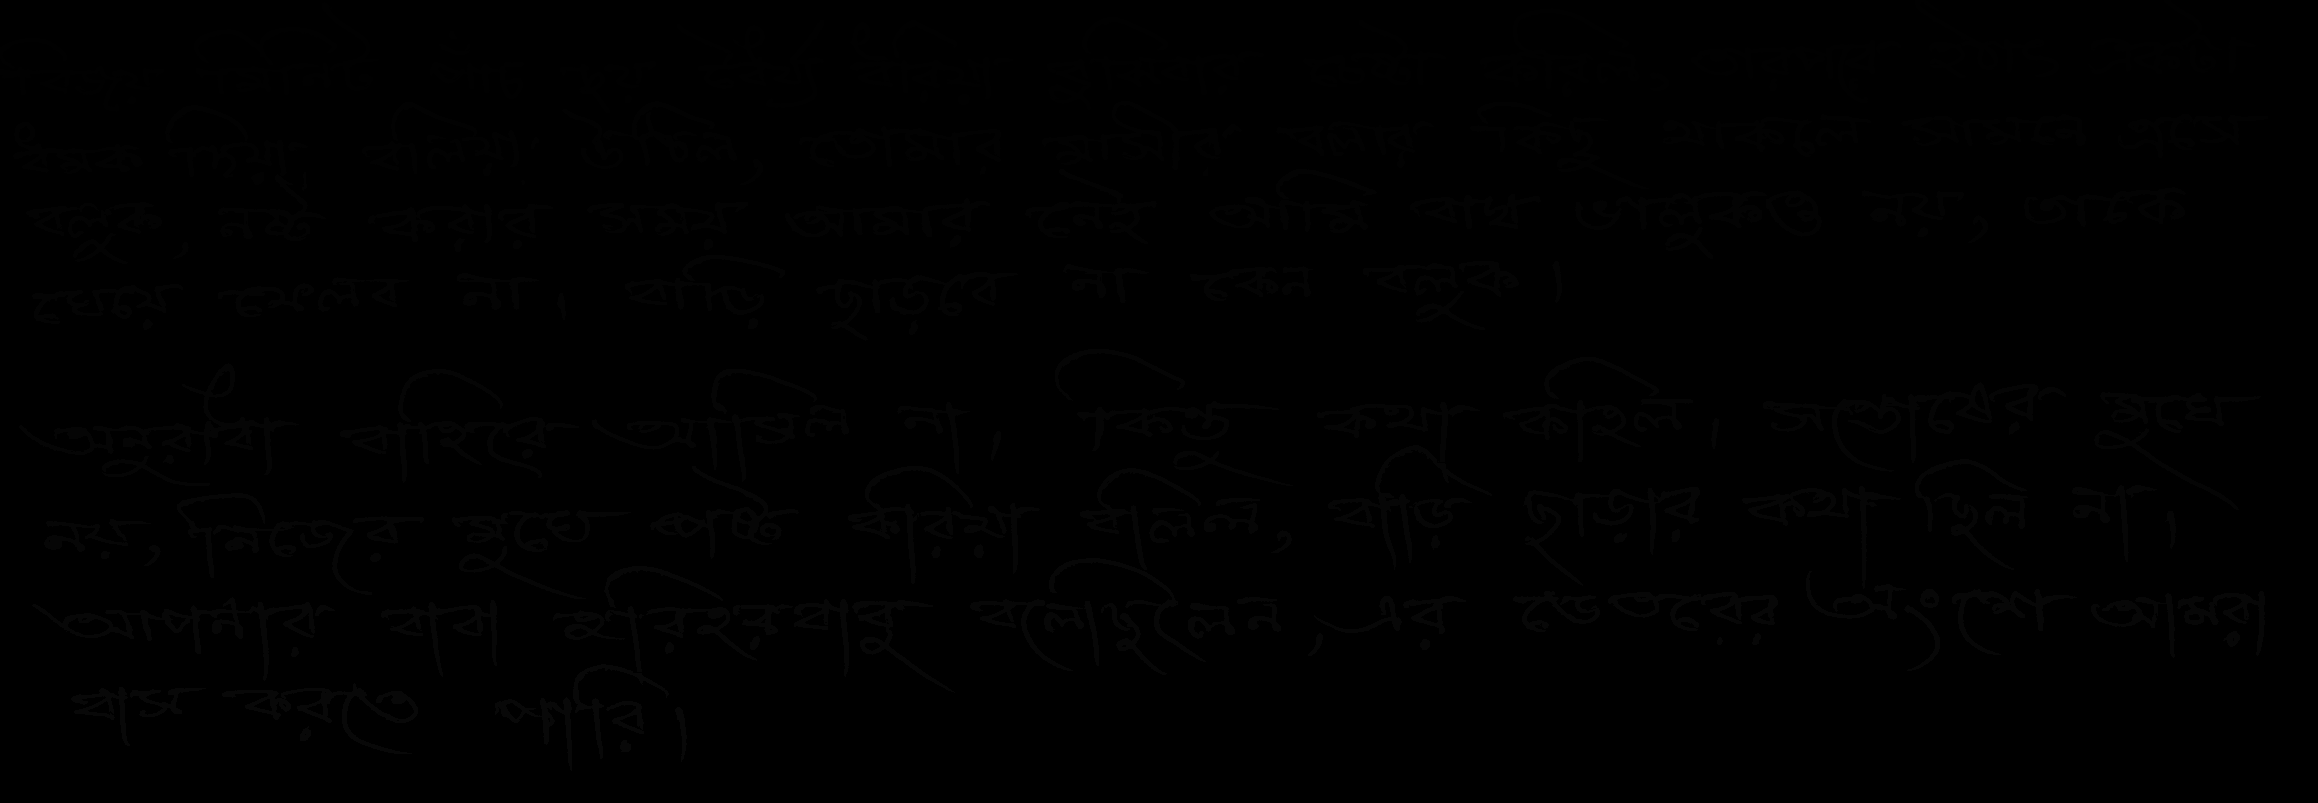 ধমক দিয়া বলিয়া উঠিল, তোমার মাসীর বলার কিছু থাকলে সামনে এসে
বলুক, নষ্ট করার সময় আমার নেই আমি বাঘ ভালুকও নয়, তাকে
খেয়ে ফেলব না। বাড়ি ছাড়বে না কেন বলুক।
অনুরাধা বাহিরে আসিল না, কিন্তু কথা কহিল। সন্তোষের মুখে
নয়, নিজের মুখে স্পষ্ট করিয়া বলিল, বাড়ি ছাড়ার কথা ছিল না।
আপনার বাবা হরিহরবাবু বলেছিলেন, এর ভেতরের অংশে আমরা
বাস করতে পারি।